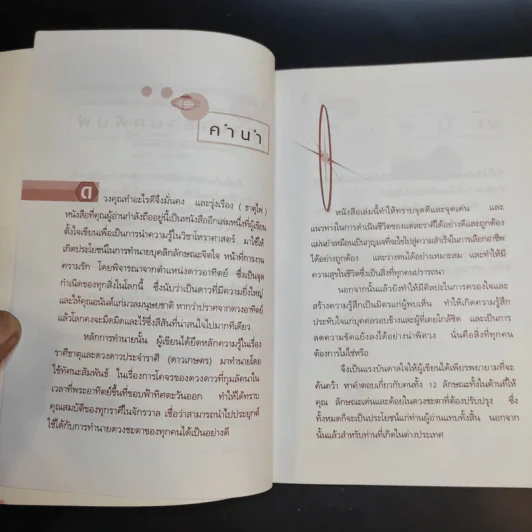 คำนำ
ดวงคุณทำอะไรดีจึงมั่นคง และรุ่งเรือง (ธาตุไฟ)
หนังสือที่คุณผู้อ่านกำลังถืออยู่นี้เป็นหนังสืออีกเล่มหนึ่งที่ผู้เขียน
ตั้งใจเขียนเพื่อเป็นการนำความรู้ในวิชาโหราศาสตร์ มาใช้ให้
เกิดประโยชน์ในการทำนายบุคลิกลักษณะจิตใจ หน้าที่การงาน
ความรัก โดยพิจารณาจากตำแหน่งดาวอาทิตย์ ซึ่งเป็นจุด
กำเนิดของทุกสิ่งในโลกนี้ ซึ่งนับว่าเป็นดาวที่มีความยิ่งใหญ่
และให้คุณอนันต์แก่มวลมนุษยชาติ หากว่าปราศจากดวงอาทิตย์
แล้วโลกคงจะมืดมิดและไร้ซึ่งสีสันที่น่าสนใจไปมากทีเดียว
หลักการทำนายนั้น ผู้เขียนได้ยึดหลักความรู้ในเรื่อง
ราศีธาตุและดวงดาวประจำราศี (ดาวเกษตร) มาทำนายโดย
ใช้ทัศนะสัมพันธ์ ในเรื่องการโคจรของดวงดาวที่กุมลัคนาใน
เวลาที่พระอาทิตย์ขึ้นที่ขอบฟ้าทิศตะวันออก ทำให้ได้ทราบ
คุณสมบัติของทุกราศีในจักรวาล เชื่อว่าสามารถนำไปประยุกต์
ใช้ได้กับการทำนายดวงชะตาของทุกคนได้เป็นอย่างดี
หนังสือเล่มนี้ทำให้ทราบจุดดีและจุดเด่น และ
แนวทางในการดำเนินชีวิตของแต่ละราศีได้อย่างดีและถูกต้อง
แม่นยำเหมือนเป็นกุญแจที่จะไขไปสู่ความสำเร็จในการเลือกอาชีพ
ได้อย่างถูกต้อง และวางตนได้อย่างเหมาะสม และทำให้มี
ความสุขในชีวิตซึ่งเป็นสิ่งที่ทุกคนปรารถนา
นอกจากนั้นแล้วยังทำให้มีศิลปะในการครองใจและ
สร้างความรู้สึกเป็นมิตรแก่ผู้พบเห็น ทำให้เกิดความรู้สึก
ประทับใจแก่บุคคลรอบข้างและผู้ที่เคยใกล้ชิด และเป็นการ
ลดความขัดแย้งลงได้อย่างน่าพิศวง นั่นคือสิ่งที่ทุกคน
ต้องการไม่ใช่หรือ
จึงเป็นแรงบันดาลใจให้ผู้เขียนได้เพียรพยายามที่จะ
ค้นคว้า หาคำตอบเกี่ยวกับคนทั้ง 12 ลักษณะทั้งในด้านที่ให้
คุณ ลักษณะเด่นและด้อยในดวงชะตาที่ต้องปรับปรุง ซึ่ง
ทั้งหมดก็จะเป็นประโยชน์แก่ท่านผู้อ่านแทบทั้งสิ้น นอกจาก
นั้นแล้วสำหรับท่านที่เกิดในต่างประเทศ